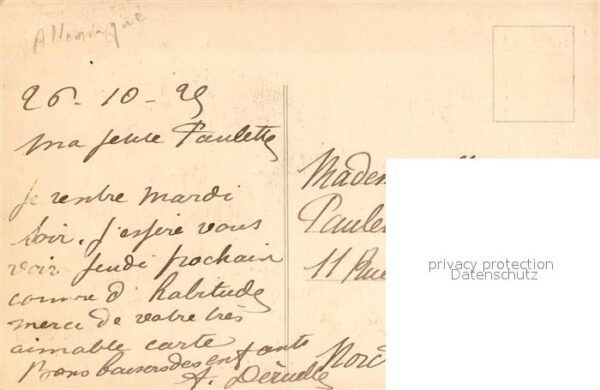 Allemagne
26-10-25
ma petite Paulette
Je rentre mardi
soir. J'espère vous
voir jeudi prochain
comme d'habitude
merci de votre très
aimable carte
Bons baisers des enfants
A.
Madem
Paule
11 Rue
privacy protection
Datenschutz